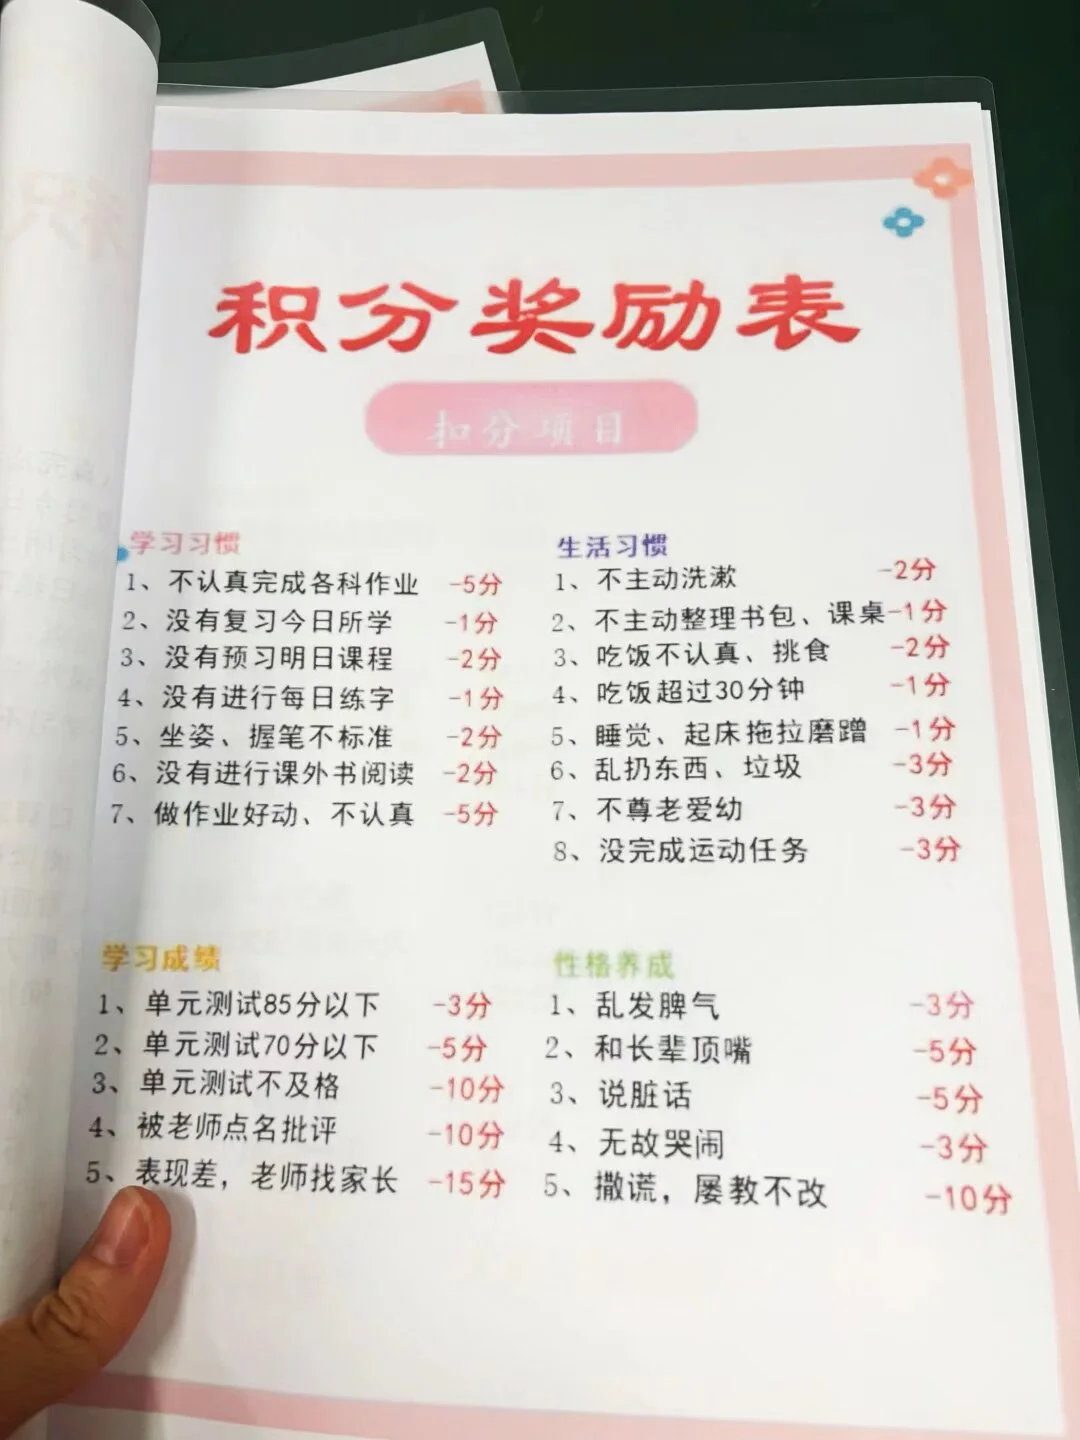 积分奖励表
扣分项目
学习习惯
1、不认真完成各科作业 -5分
2、没有复习今日所学 -1分
3、没有预习明日课程 -2分
4、没有进行每日练字 -1分
5、坐姿、握笔不标准 -2分
6、没有进行课外书阅读 -2分
7、做作业好动、不认真 -5分
生活习惯
1、不主动洗漱 -2分
2、不主动整理书包、课桌 -1分
3、吃饭不认真、挑食 -2分
4、吃饭超过30分钟 -1分
5、睡觉、起床拖拉磨蹭 -1分
6、乱扔东西、垃圾 -3分
7、不尊老爱幼 -3分
8、没完成运动任务 -3分
学习成绩
1、单元测试85分以下 -3分
2、单元测试70分以下 -5分
3、单元测试不及格 -10分
4、被老师点名批评 -10分
5、表现差，老师找家长 -15分
性格养成
1、乱发脾气 -3分
2、和长辈顶嘴 -5分
3、说脏话 -5分
4、无故哭闹 -3分
5、撒谎，屡教不改 -10分